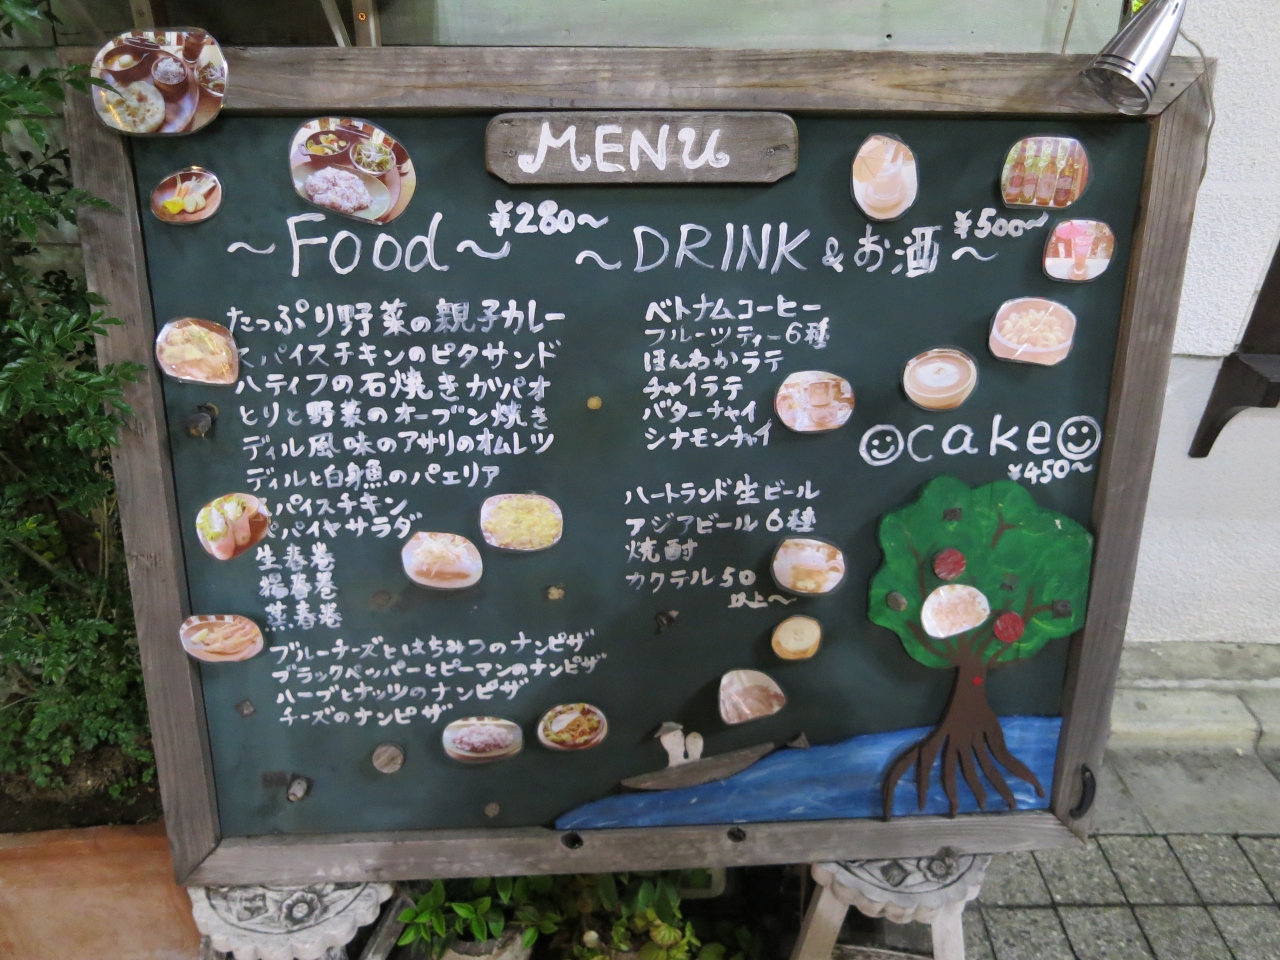 MENU
~Food~
¥280~
たっぷり野菜の親子カレー
スパイスチキンのピタサンド
ハティフの石焼きガパオ
とりと野菜のオーブン焼き
ディル風味のアサリのオムレツ
ディルと白身魚のパエリア
スパイスチキン
パパイヤサラダ
生春巻
揚春巻
蒸春巻
ブルーチーズとはちみつのナンピザ
ブラックペッパーとピーマンのナンピザ
ハーブとナッツのナンピザ
チーズのナンピザ
~DRINK&お酒~
¥500~
ベトナムコーヒー
フルーツティー6種
ほんわかラテ
チャイラテ
バターチャイ
シナモンチャイ
ハートランド生ビール
アジアビール6種
焼酎
カクテル50
以上~
cake
¥450~